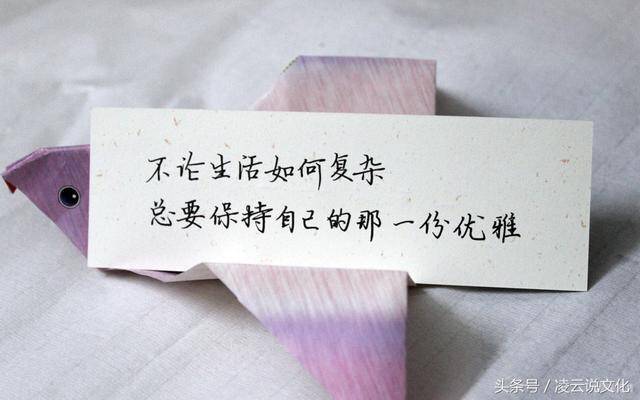 不论生活如何复杂
总要保持自己的那一份优雅
头条号／凌云说文化